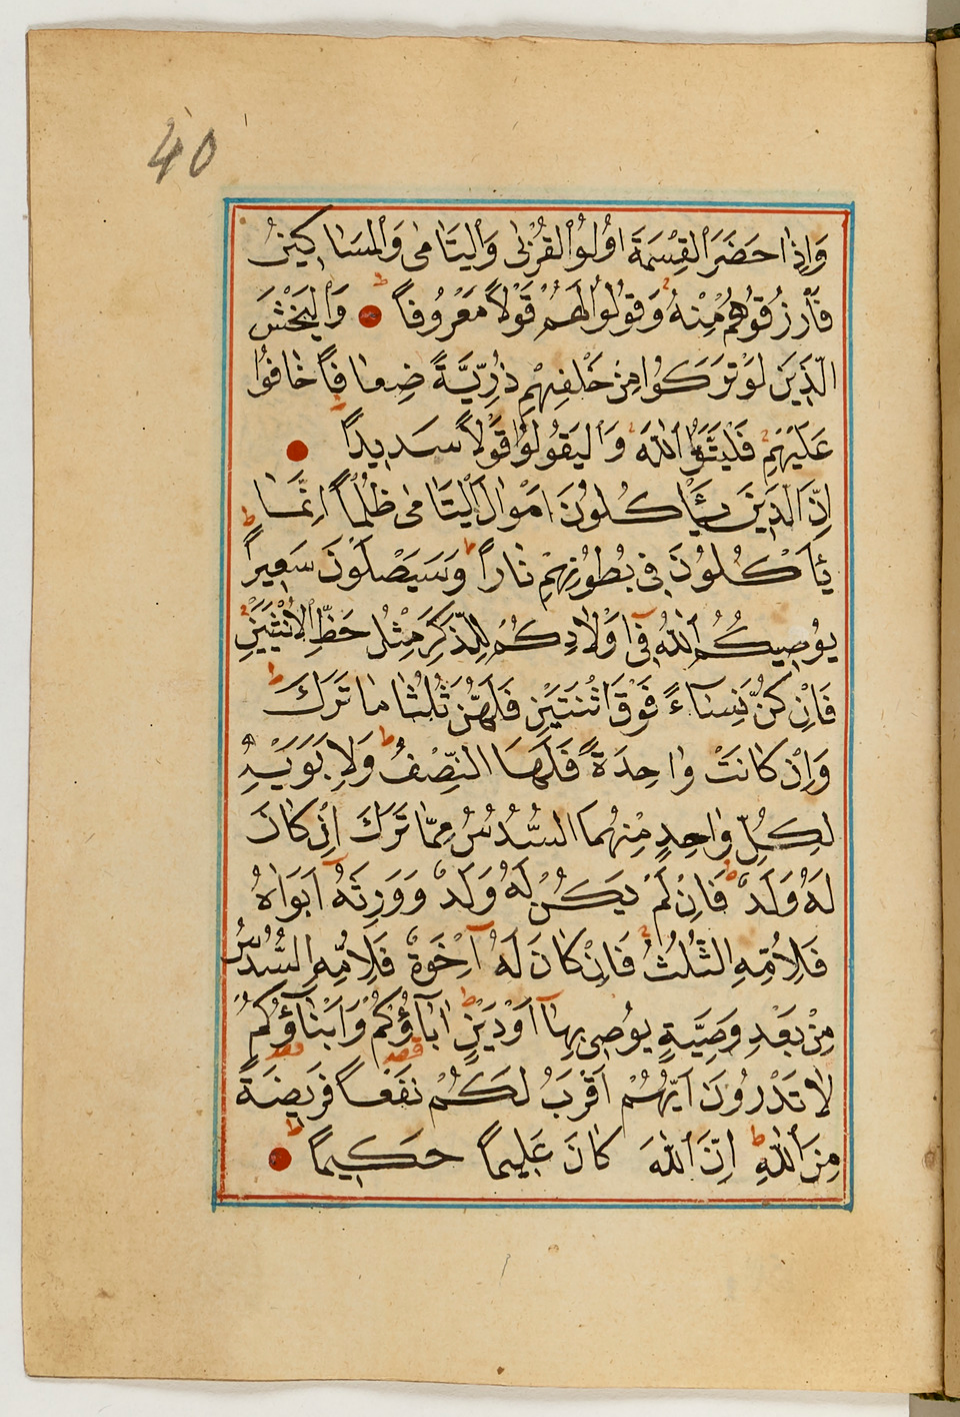 40
وَاِذَا حَضَرَ الْقِسْمَةَ اُولُوا الْقُرْبٰى وَالْيَتَامٰى وَالْمَسَاكِينُ
فَارْزُقُوهُمْ مِنْهُ وَقُولُوا لَهُمْ قَوْلاً مَعْرُوفاً وَالْيَخْشَ
الَّذِينَ لَوْ تَرَكُوا مِنْ خَلْفِهِمْ ذُرِّيَّةً ضِعَافاً خَافُوا
عَلَيْهِمْ فَلْيَتَّقُوا اللّٰهَ وَالْيَقُولُوا قَوْلاً سَدِيداً
اِنَّ الَّذِينَ يَأْكُلُونَ اَمْوَالَ الْيَتَامٰى ظُلْماً اِنَّمَا
يَأْكُلُونَ فِى بُطُونِهِمْ نَاراً وَسَيَصْلَوْنَ سَعِيراً
يُوصِيكُمُ اللّٰهُ فِى اَوْلَادِكُمْ لِلذَّكَرِ مِثْلُ حَظِّ الْاُنْثَيَيْنِ
فَاِنْ كُنَّ نِسَاءً فَوْقَ اثْنَتَيْنِ فَلَهُنَّ ثُلُثَا مَا تَرَكَ
وَاِنْ كَانَتْ وَاحِدَةً فَلَهَا النِّصْفُ وَلِاَبَوَيْهِ
لِكُلِّ وَاحِدٍ مِنْهُمَا السُّدُسُ مِمَّا تَرَكَ اِنْ كَانَ
لَهُ وَلَدٌ فَاِنْ لَمْ يَكُنْ لَهُ وَلَدٌ وَوَرِثَهُ اَبَوَاهُ
فَلِاُمِّهِ الثُّلُثُ فَاِنْ كَانَ لَهُ اِخْوَةٌ فَلِاُمِّهِ السُّدُسُ
مِنْ بَعْدِ وَصِيَّةٍ يُوصِى بِهَا اَوْ دَيْنٍ اٰبَاؤُكُمْ وَاَبْنَاؤُكُمْ
لَا تَدْرُونَ اَيُّهُمْ اَقْرَبُ لَكُمْ نَفْعاً فَرِيضَةً
مِنَ اللّٰهِ اِنَّ اللّٰهَ كَانَ عَلِيماً حَكِيماً